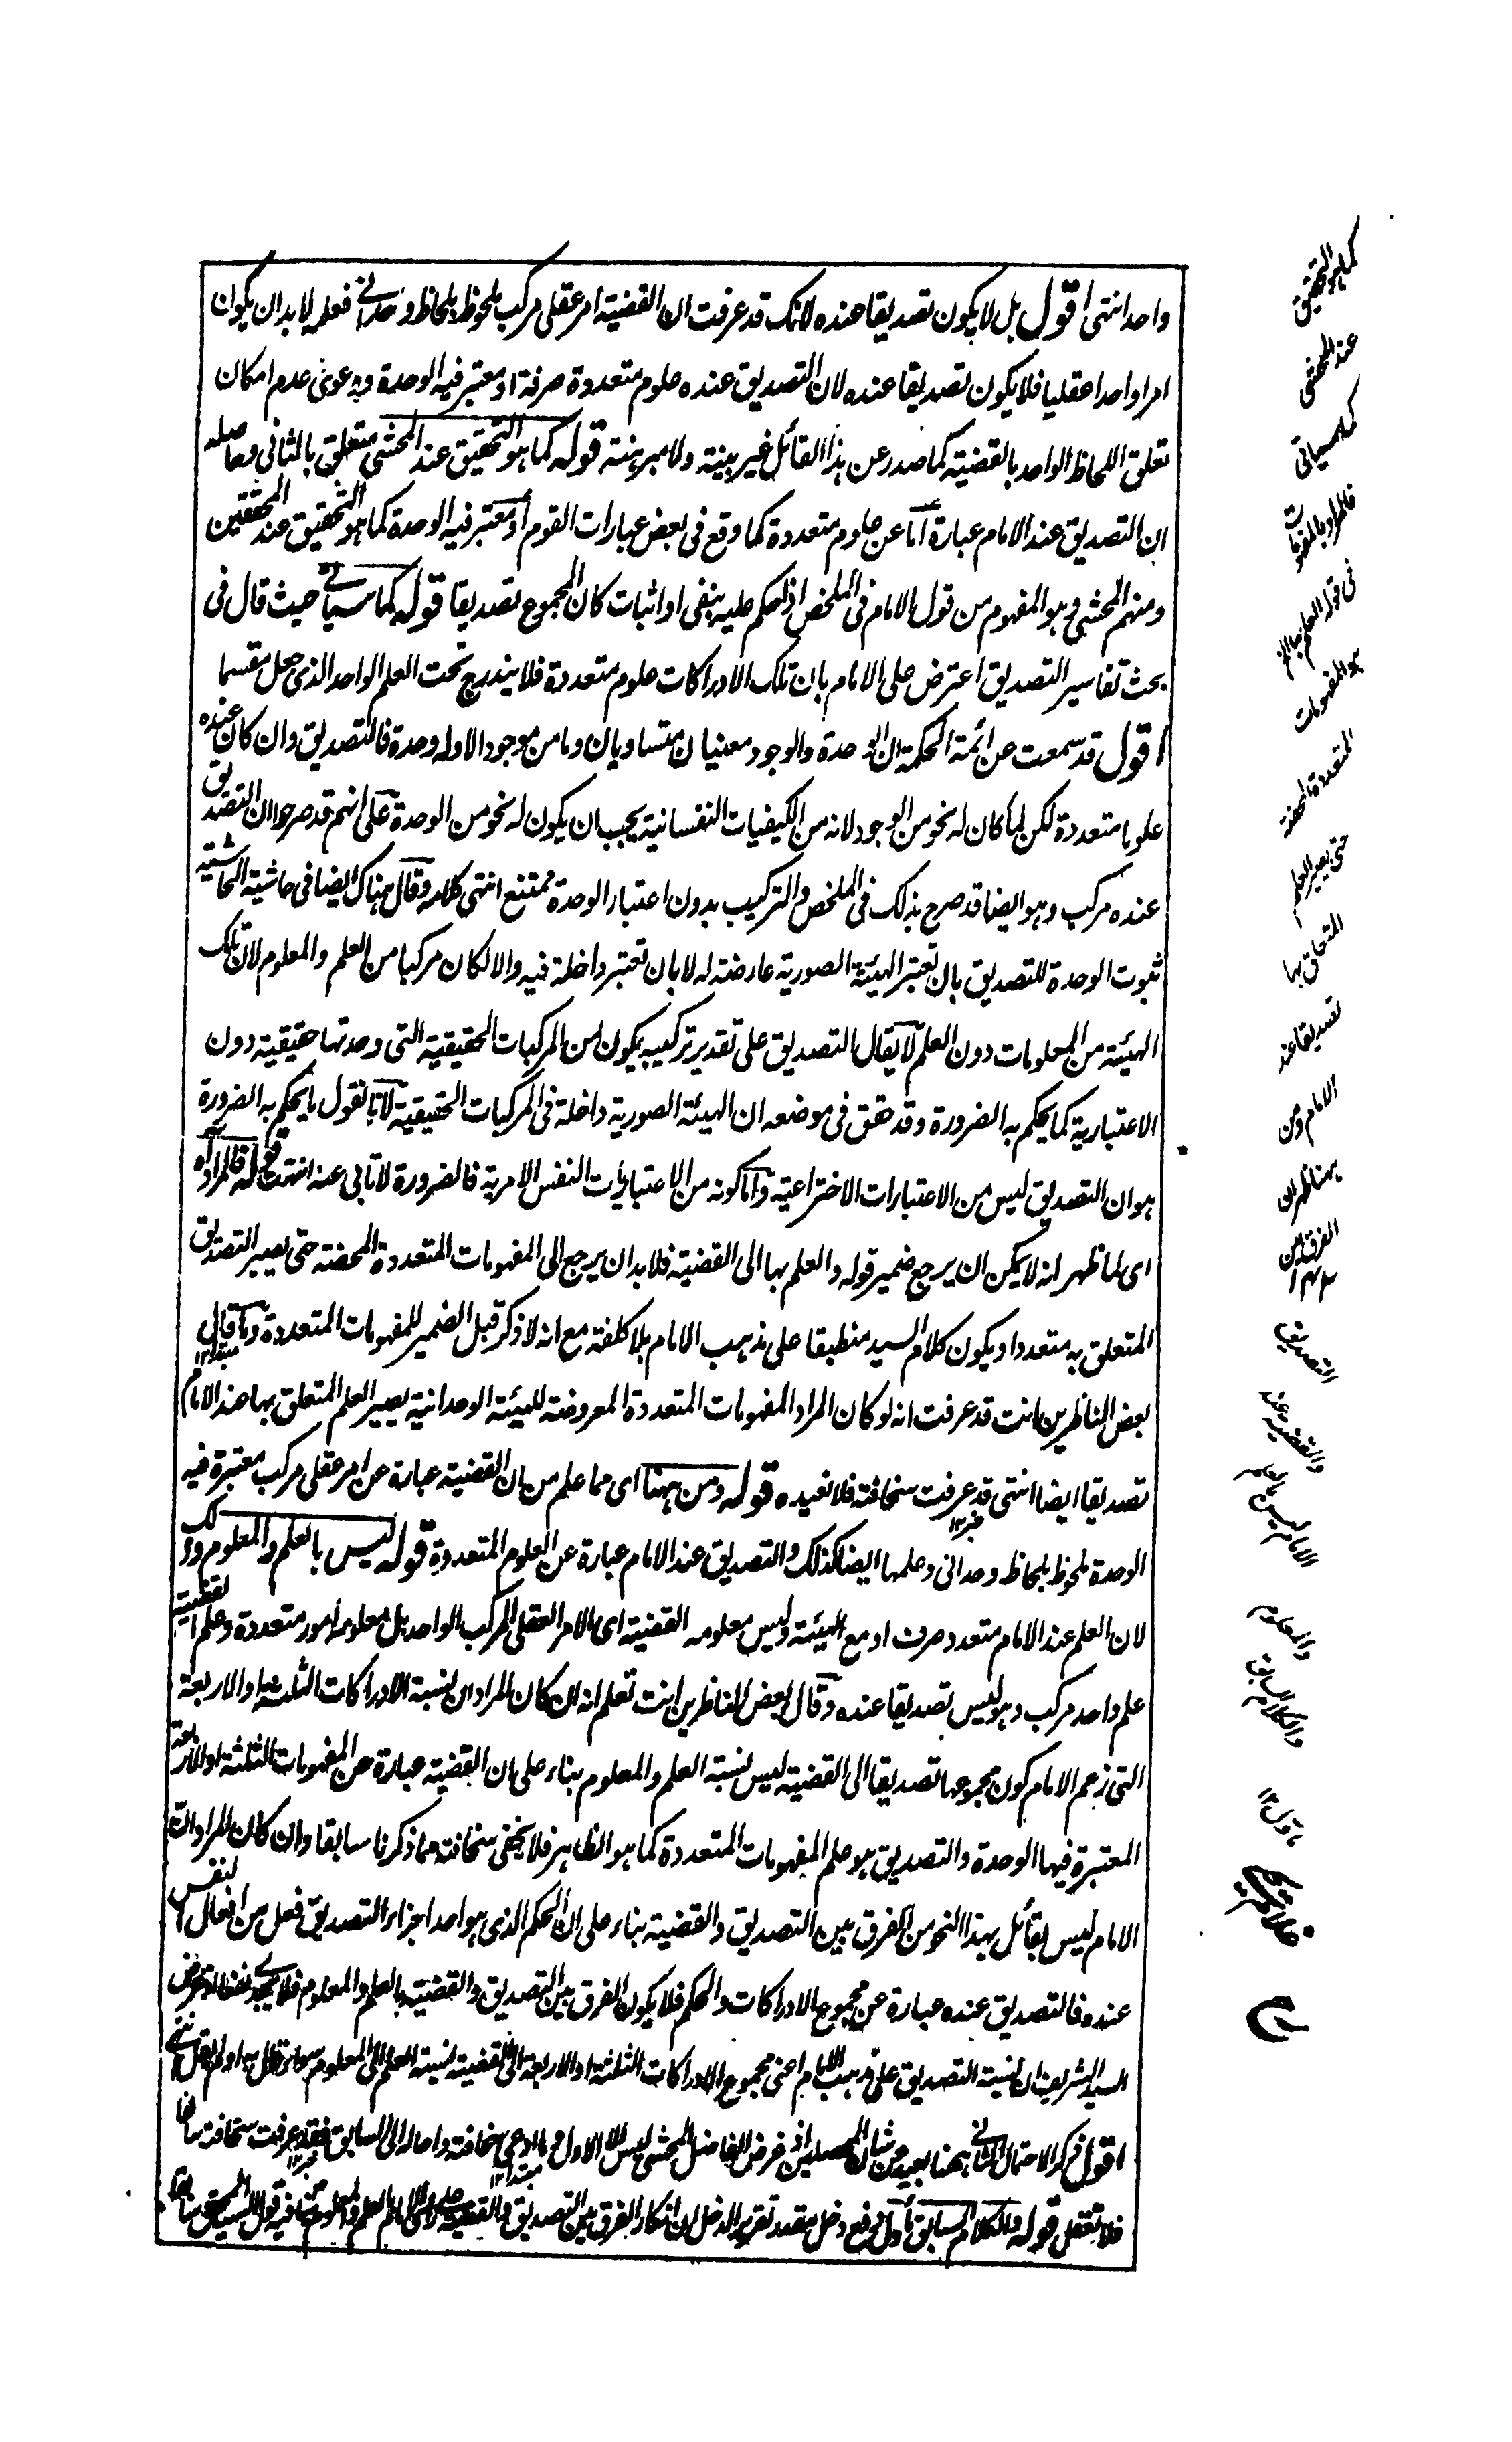 واحد انتهى اقول بل لا يكون تصديقا عنده لانك قد عرفت ان القضية امر عقلى مركب ملحوظ بلحاظ وحدانى فعلمه لا بد ان يكون
امرا واحدا عقليا فلا يكون تصديقا عنده لان التصديق عنده علوم متعددة صرفة او معتبر فيه الوحدة ودعوى عدم امكان
تعلق اللحاظ الواحد بالقضية كما صدر عن هذا القائل غير بينة ولا مبرهنة قوله كما هو التحقيق عند المحشى متعلق بالثانى وحاصله
ان التصديق عند الامام عبارة اما عن علوم متعددة كما وقع فى بعض عبارات القوم او معتبر فيه الوحدة كما هو التحقيق عند المحققين
ومنهم المحشى وهو المفهوم من قول الامام فى الملخص اذا حكم عليه بنفى او اثبات كان المجموع تصديقا قوله كما سياتى حيث قال فى
بحث تفاسير التصديق اعترض على الامام بان تلك الادراكات علوم متعددة فلا يندرج تحت العلم الواحد الذى جعل مقسما
اقول قد سمعت من ائمة الحكمة ان الوحدة والوجود معنيان متساويان وما من موجود الا وله وحدة فالتصديق وان كان عنده
علوما متعددة لكن لما كان له نحو من الوجود لانه من الكيفيات النفسانية يجب ان يكون له نحو من الوحدة على انهم قد صرحوا ان التصديق
عنده مركب وهو ايضا قد صرح بذلك فى الملخص والتركيب بدون اعتبار الوحدة ممتنع انتهى كلامه وقال هناك ايضا فى حاشية الحاشية
ثبوت الوحدة للتصديق بان تعتبر الهيئة الصورية عارضة له لا بان تعتبر داخلة فيه والا لكان مركبا من العلم والمعلوم لان تلك
الهيئة من المعلومات دون العلم لا يقال التصديق على تقدير تركيبه يكون من المركبات الحقيقية التى وحدتها حقيقية دون
الاعتبارية كما يحكم به الضرورة وقد حقق فى موضعه ان الهيئة الصورية داخلة فى المركبات الحقيقية لانا نقول ما يحكم به الضرورة
هو ان التصديق ليس من الاعتبارات الاختراعية واما كونه من الاعتباريات النفس الامرية فالضرورة لا تابى عنه انتهت قوله فالمراد اه
اى لما ظهر انه لا يمكن ان يرجع ضمير قوله والعلم بها الى القضية فلا بد ان يرجع الى المفهومات المتعددة المحضة حتى يصير التصديق
المتعلق به متعددا ويكون كلام السيد منطبقا على مذهب الامام بلا كلفة مع انه لا ذكر قبل الضمير للمفهومات المتعددة وما قال
بعض الناظرين انت قد عرفت انه لو كان المراد المفهومات المتعددة المعروضة للهيئة الوحدانية يصير العلم المتعلق بها عند الامام
تصديقا ايضا انتهى قد عرفت سخافته فلا نعيده قوله ومن ههنا اى مما علم من ان القضية عبارة عن امر عقلى مركب معتبرة فيه
الوحدة ملحوظ بلحاظ وحدانى وعلمها ايضا كذلك والتصديق عند الامام عبارة عن العلوم المتعددة قوله ليس بالعلم والمعلوم وذلك
لان العلم عند الامام متعدد صرف او مع الهيئة وليس معلومه القضية اى الامر العقلى المركب الواحد بل معلومه امور متعددة وعلم القضية
علم واحد مركب وهو ليس تصديقا عنده وقال بعض الناظرين انت تعلم انه ان كان المراد ان نسبة الادراكات الثلثة او الاربعة
التى زعم الامام كون مجموعها تصديقا الى القضية ليس نسبة العلم والمعلوم بناء على ان القضية عبارة عن المفهومات الثلثة او الاربعة
المعتبرة فيها الوحدة والتصديق هو علم المفهومات المتعددة كما هو الظاهر فلا يخفى سخافته مما ذكرنا سابقا وان كان المراد ان
الامام ليس بقائل بهذا النحو من الفرق بين التصديق والقضية بناء على ان الحكم الذى هو احد اجزاء التصديق فعل من افعال النفس
عنده فالتصديق عنده عبارة عن مجموع الادراكات والحكم فلا يكون الفرق بين التصديق والقضية بالعلم والمعلوم فلا يجدى نفعا لان غرض
السيد الشريف ان نسبة التصديق على مذهب الامام اعنى مجموع الادراكات الثلثة او الاربعة الى القضية نسبة العلم الى المعلوم سواء قال به او لم يقل انتهى
اقول ذكر الاحتمال الثانى ههنا بعيد عن شان المحصلين اذ غرض الفاضل المحشى ليس الا الاول وما ادعى سخافته واحاله الى السابق فقد عرفت سخافته سابقا
فلا تغفل قوله والكلام السابق ماول دفع دخل مقدر تقرير الدخل ان انكار الفرق بين التصديق والقضية على راى الامام بالعلم والمعلوم ينافيه قول السيد المحقق سابقا
كما هو التحقيق
عند المحشى
كما سياتى
فالمراد بالمفهومات
فى قوله العلم بها الخ
هو المفهومات
المتعددة المحضة
حتى يصير العلم
المتعلق بها
تصديقا عند
الامام ومن
ههنا ظهر ان
الفرق بين
التصديق
والقضية عند
الامام ليس بالعلم
والمعلوم
والكلام السابق
ماول ١٢